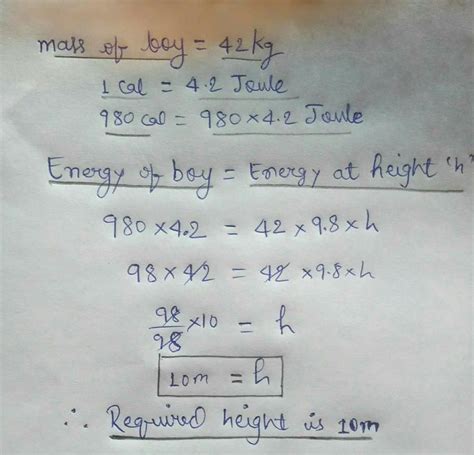 mass of boy = 42kg
1 cal = 4.2 Joule
980 cal = 980×4.2 Joule
Energy of boy = Energy at height 'h'
980×4.2 = 42×9.8×h
98×42 = 42×9.8×h
98/98 ×10 = h
10m = h
∴ Required height is 10m